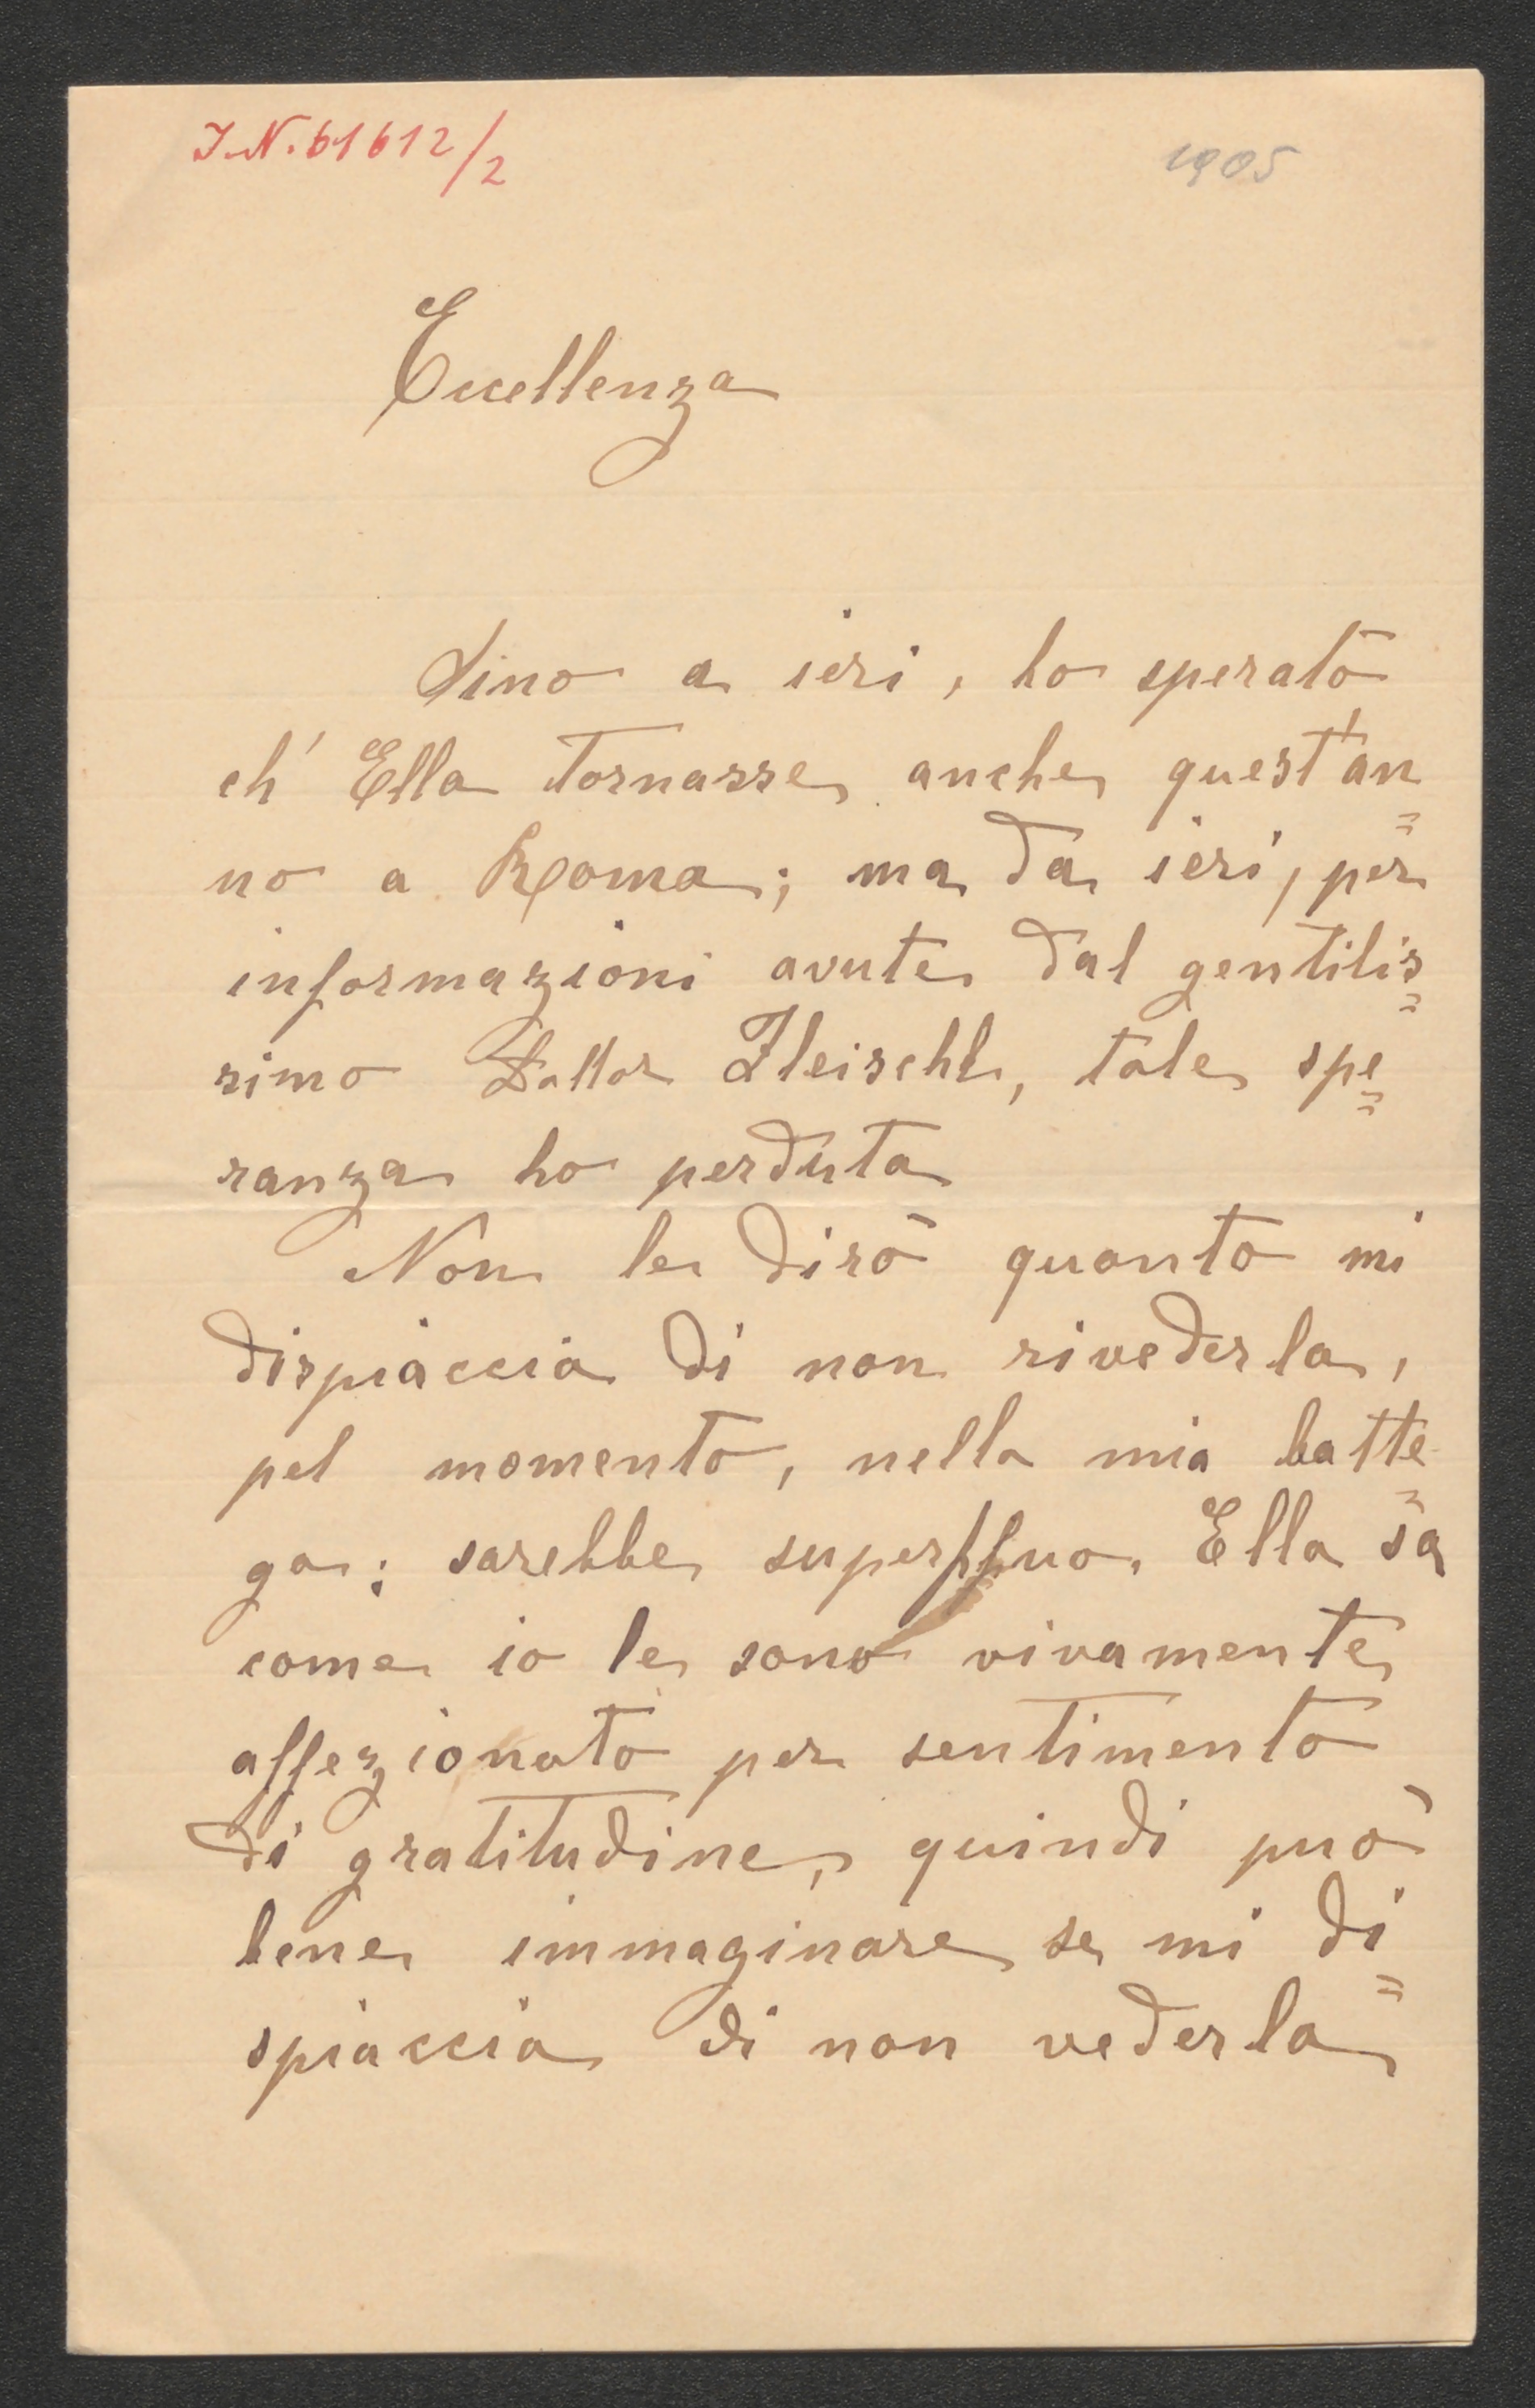 I.N. 61612/2
1905
Eccellenza
Sino a ieri, ho sperato
ch' Ella tornasse anche quest'an=
no a Roma; ma da ieri, per
informazioni avute dal gentilis=
simo Dottor Fleischl, tale spe=
ranza ho perduta
Non le dirò quanto mi
dispiaccia di non rivederla,
pel momento, nella mia botte=
ga; sarebbe superfluo. Ella sa
come io le sono vivamente
affezionato per sentimento
di gratitudine, quindi può
bene immaginare se mi di=
spiaccia di non vederla